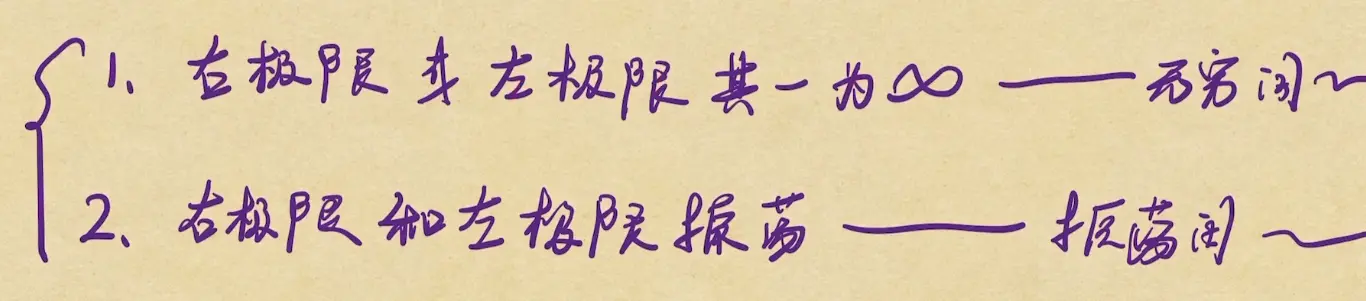 1、右极限或左极限其一为∞ —— 无穷间~
2、右极限和左极限振荡 —— 振荡间~